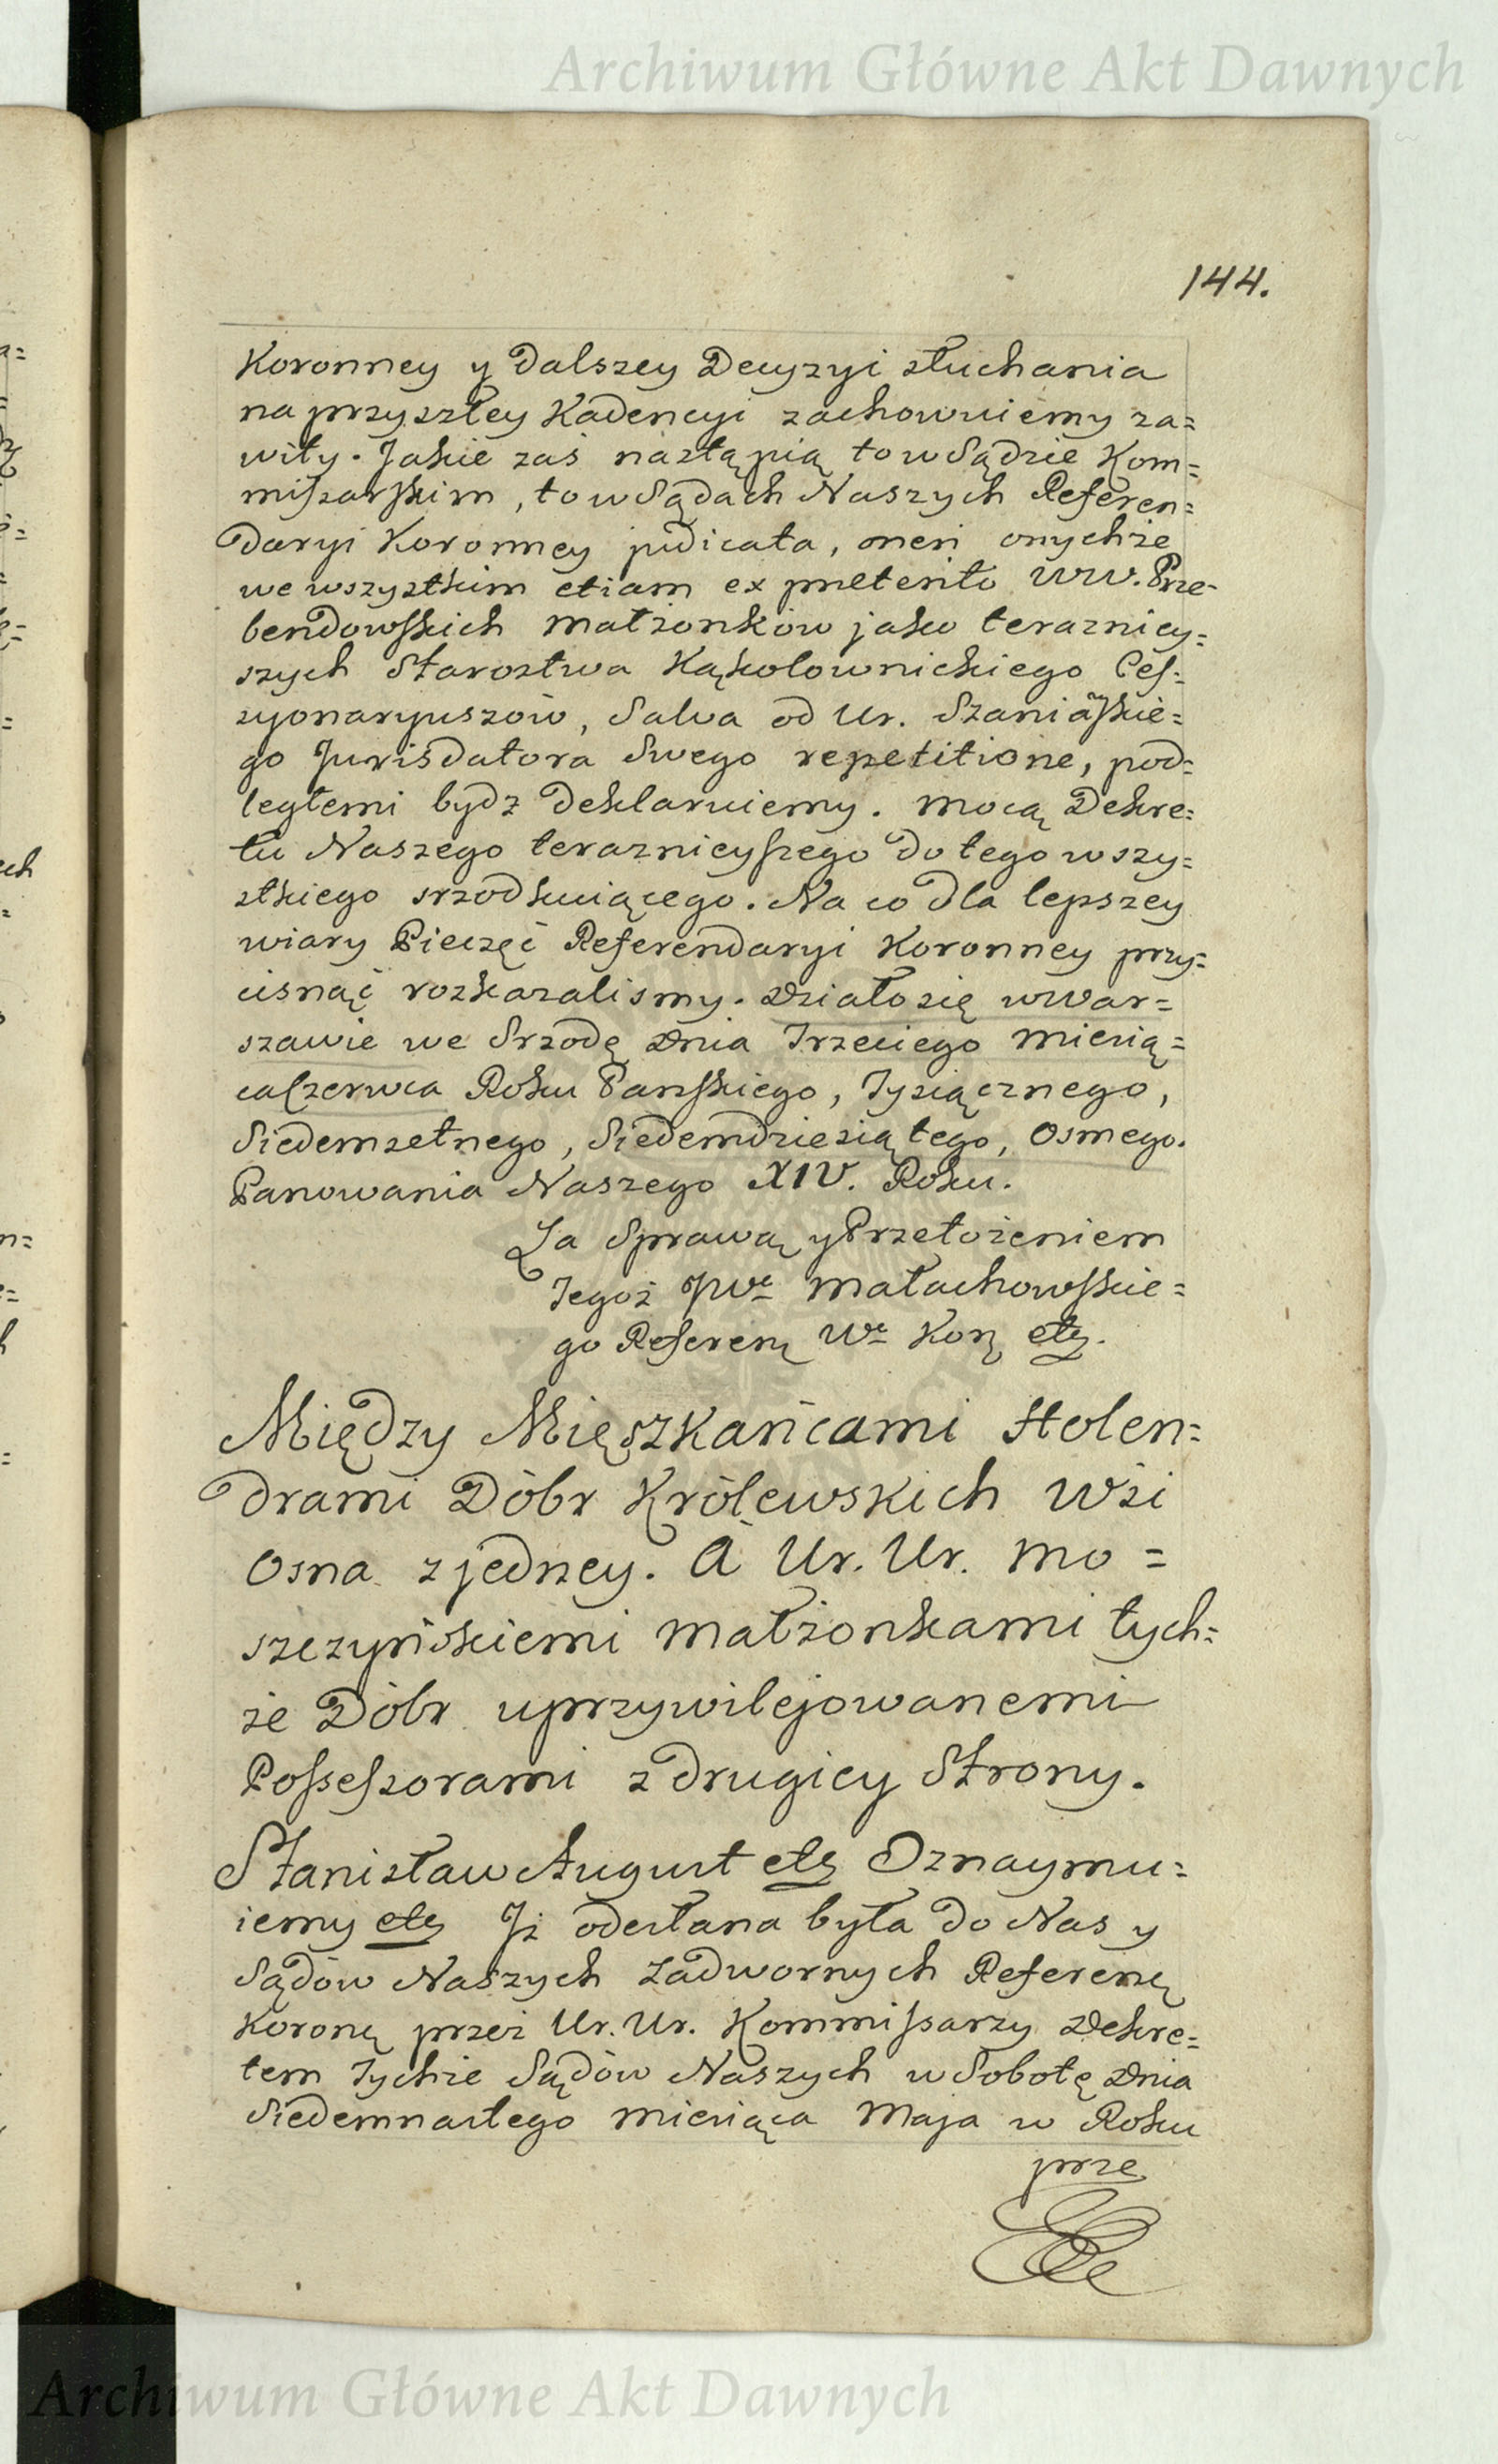 Archiwum Główne Akt Dawnych
144.
Koronney y dalszey Decyzyi słuchania
na przyszłey Kadencyi zachowuiemy za=
wity. Jakie zaś nastąpią to w Sądzie Kom=
missarskim, to w Sądach Naszych Referen=
daryi Koronney judicata, oneri onychże
we wszystkim etiam ex præterito WW. Prze=
bendowskich Małżonków jako terazniey=
szych Starostwa Kąkolownickiego Ces=
syonaryuszów, Salva od Ur. Szaniawskie=
go Jurisdatora Swego repetitione, pod=
ległemi bydz deklaruiemy. Mocą Dekre=
tu Naszego teraznieyszego do tego wszy=
stkiego srzodkuiącego. Na co dla lepszey
wiary Pieczęć Referendaryi Koronney przy=
cisnąć rozkazalismy. Działo się w War=
szawie we Srzodę Dnia Trzeciego Miesią=
ca Czerwca Roku Pańskiego, Tysiącznego,
Siedemsetnego, Siedemdziesiątego, Osmego.
Panowania Naszego XIV. Roku.
Za Sprawą y Przełożeniem
Tegoż JWe Małachowskie=
go Referen We Kor etc.
Między Mięszkańcami Holen=
drami Dóbr Królewskich Wsi
Osna z jedney. A Ur. Ur. Mo=
szczyńskiemi Małżonkami tych=
że Dóbr uprzywilejowanemi
Possessorami z drugiey Strony.
Stanisław August etc Oznaymu=
iemy etc Iż odesłana była do Nas y
Sądów Naszych Zadwornych Referen
Koron przez Ur. Ur. Kommissarzy Dekre=
tem Tychże Sądów Naszych w Sobotę Dnia
Siedemnastego Miesiąca Maja w Roku
prze
Archiwum Główne Akt Dawnych